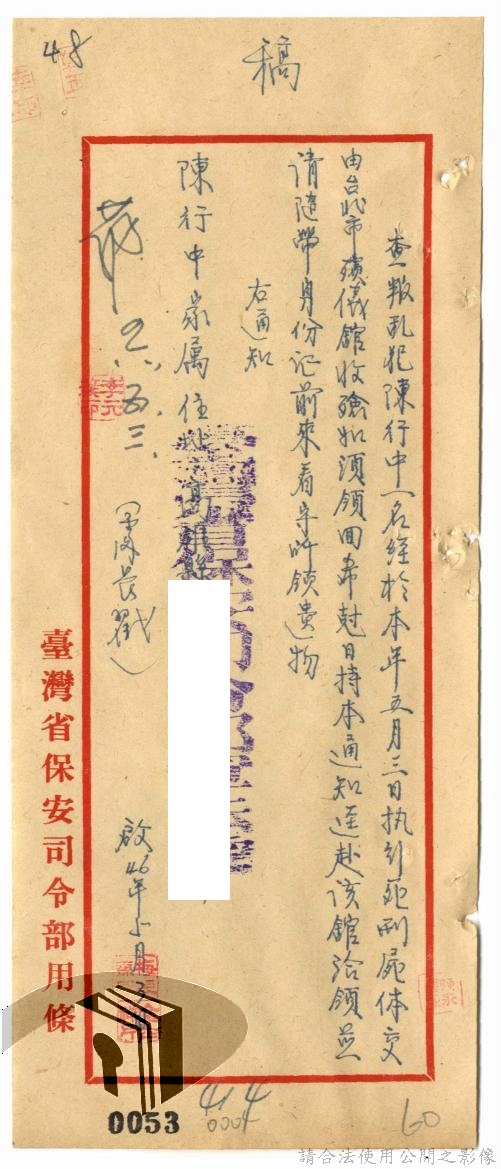 48
稿
查叛乱犯陳行中一名経於本年五月三日执行死刑屍体交
由台北市殯儀館收殮如須領回希尅日持本通知逕赴该館洽領並
请隨帶身份证前來看守所領遺物
右通知
陳行中家属住址高雄縣
五、三、
啟46年5月3
臺灣省保安司令部用條
0053
60
請合法使用公開之影像